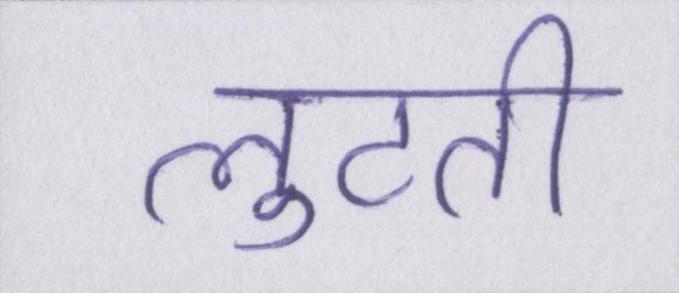 लुटती